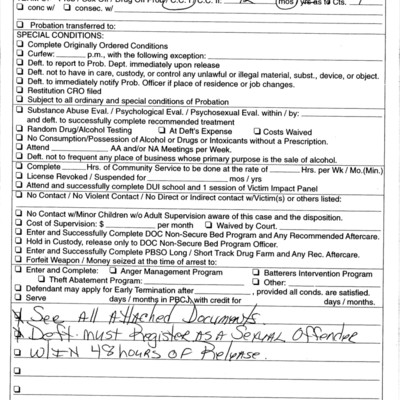 ☐ conc w/ ☐ consec. w/
☐ Probation transferred to:
SPECIAL CONDITIONS:
☐ Complete Originally Ordered Conditions
☐ Curfew: p.m., with the following exception:
☐ Deft. to report to Prob. Dept. immediately upon release
☐ Deft. not to have in care, custody, or control any unlawful or illegal material, subst., device, or object.
☐ Deft. to immediately notify Prob. Officer if place of residence or job changes.
☐ Restitution CRO filed
☐ Subject to all ordinary and special conditions of Probation
☐ Substance Abuse Eval. / Psychological Eval. / Psychosexual Eval. within / by:
and deft. to successfully complete recommended treatment
☐ Random Drug/Alcohol Testing ☐ At Deft's Expense ☐ Costs Waived
☐ No Consumption/Possession of Alcohol or Drugs or Intoxicants without a Prescription.
☐ Attend AA and/or NA Meetings per Week.
☐ Deft. not to frequent any place of business whose primary purpose is the sale of alcohol.
☐ Complete Hrs. of Community Service to be done at the rate of Hrs. per Wk / Mo.(Min.)
☐ License Revoked / Suspended for mos / yrs
☐ Attend and successfully complete DUI school and 1 session of Victim Impact Panel
☐ No Contact / No Violent Contact / No Direct or Indirect contact w/Victim(s) or others listed:
☐ No Contact w/Minor Children w/o Adult Supervision aware of this case and the disposition.
☐ Cost of Supervision: $ per month ☐ Waived by Court.
☐ Enter and Successfully Complete DOC Non-Secure Bed Program and Any Recommended Aftercare.
☐ Hold in Custody, release only to DOC Non-Secure Bed Program Officer.
☐ Enter and Successfully Complete PBSO Long / Short Track Drug Farm and Any Rec. Aftercare.
☐ Forfeit Weapon / Money seized at the time of arrest to:
☐ Enter and Complete: ☐ Anger Management Program ☐ Batterers Intervention Program
☐ Theft Abatement Program: ☐ Other:
☐ Defendant may apply for Early Termination after , provided all conds. are satisfied.
☐ Serve days / months in PBCJ, with credit for days / months.
See All Attached Documents.
Deft. must Register as a Sexual Offender
☐ W/IN 48 hours of Release.